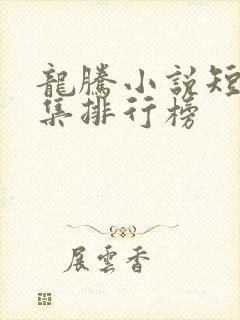 龍騰小說短
集排行榜
展雲香